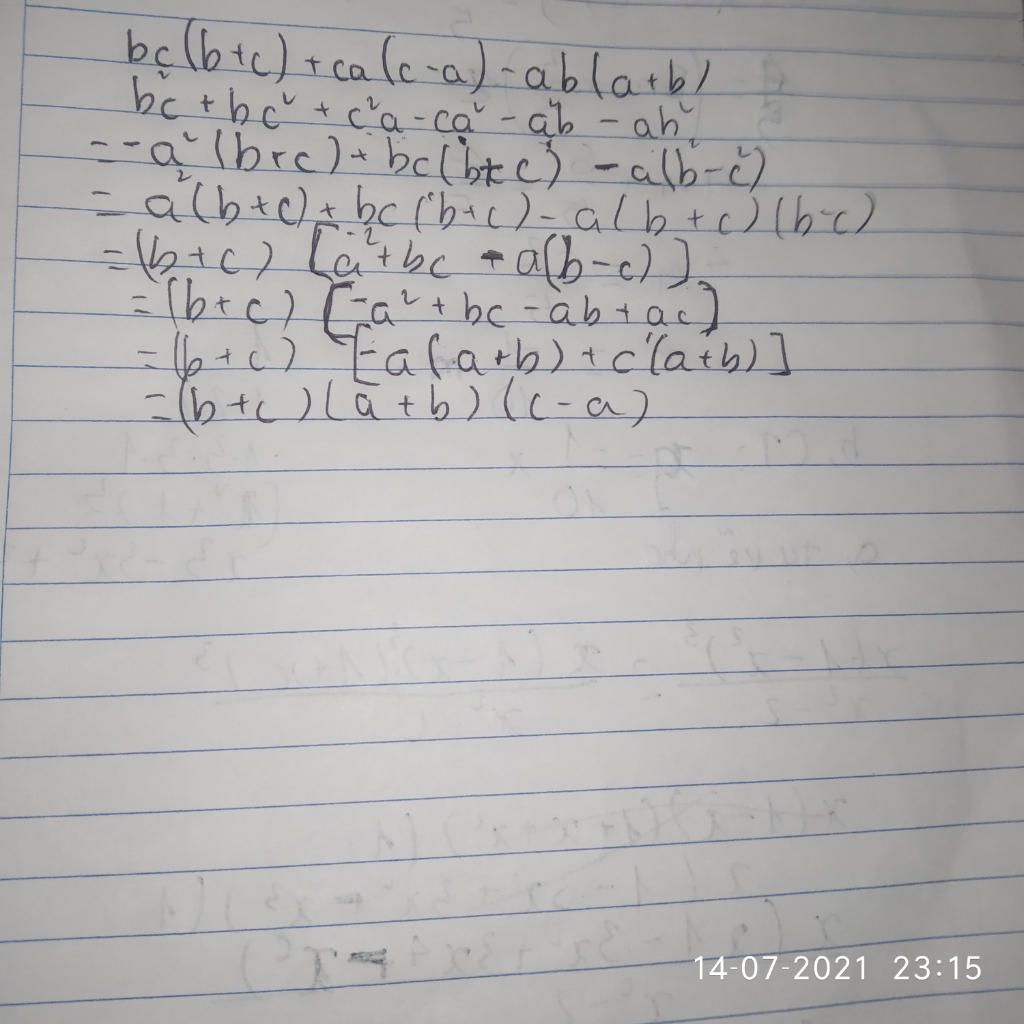 bc(b+c)+ca(c-a)-ab(a+b)
b²c + bc² + c²a - ca² - a²b - ab²
=-a²(b+c)+bc(b+c) -a(b²-c²)
= a²(b+c)+bc(b+c)-a(b+c)(b-c)
=(b+c) [-a²+bc -a(b-c)]
=(b+c) [-a²+bc-ab+ac]
=(b+c) [-a(a+b)+c(a+b)]
=(b+c)(a+b)(c-a)
14-07-2021 23:15